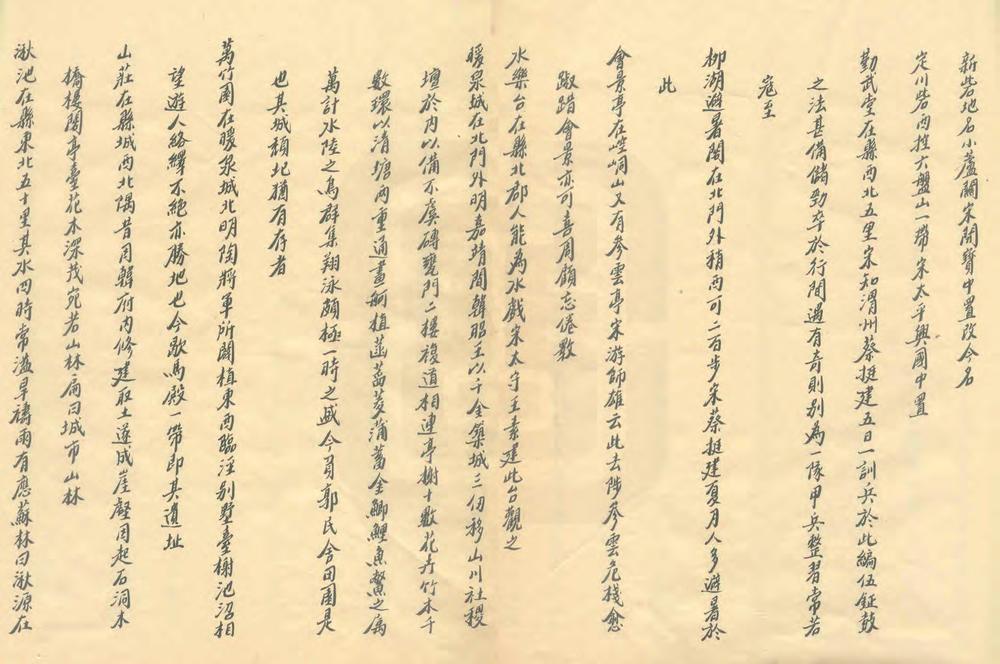 新砦地名小蘆關宋開寶中置改今名
定川砦西控六盤山一帶宋太平興國中置
勤武堂在縣西北五里宋知渭州蔡挺建五日一訓兵於此編伍鉦鼓
之法甚備儲勁卒於行間遇有奇則别為一隊甲兵整習常若
寇至
柳湖避暑閣在北門外稍西可二百步宋蔡挺建夏月人多避暑於
此
會景亭在崆峒山又有參雲亭宋游師雄云此去陟參雲危棧愈
踧踖會景亦可喜周顧忘倦数
水樂台在縣北郡人能為水戲宋太守王素建此台觀之
暖泉城在北門外明嘉靖間韓昭王以千金築城三仞移山川社稷
壇於内以備不虞磚甃門二樓複道相連亭榭十數花卉竹木千
數環以清塘两重通畫舸植菡萏菱蒲蓄金鯽鯉魚鱉之属
萬計水陸之鳥群集翔泳頗極一時之盛今負郭民舍田園是
也其城頹圮猶有存者
萬竹園在暖泉城北明陶將軍所闢植東西臨涇别墅臺榭池沼相
望遊人絡繹不絕亦勝地也今歇馬殿一帶即其遺址
山莊在縣城西北隅昔因韓府内修建取土遂成崖壑因起石洞木
橋樓閣亭臺花木深茂宛若山林扁曰城市山林
湫池在縣東北五十里其水四時常溢旱禱雨有應蘇林曰湫源在